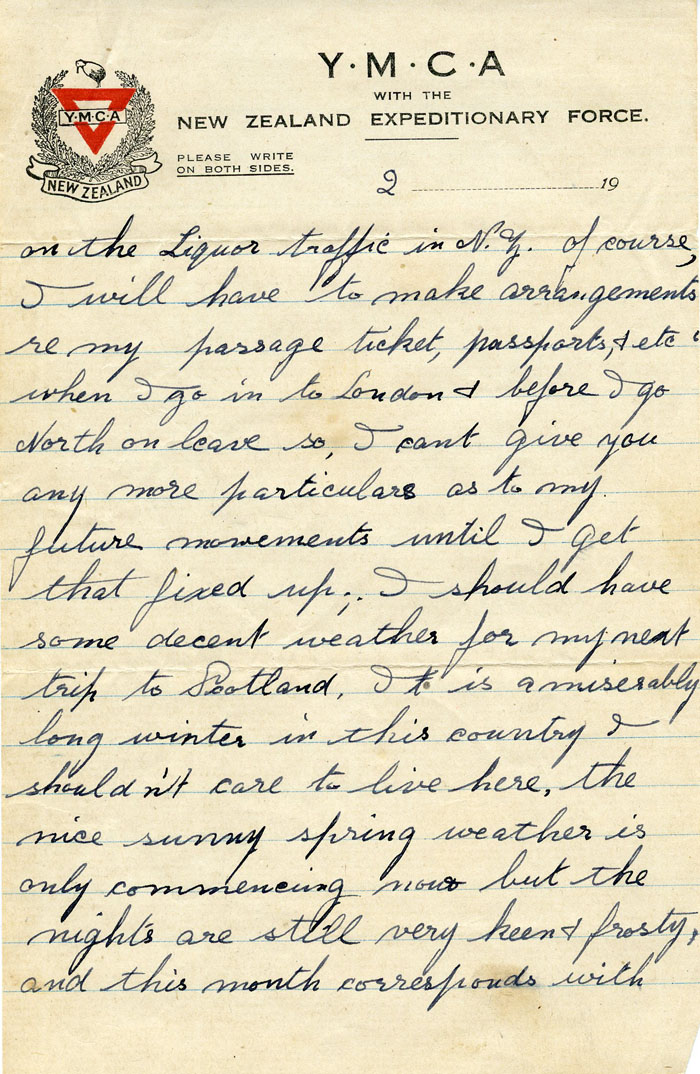 Y·M·C·A
WITH THE
NEW ZEALAND EXPEDITIONARY FORCE.
Y·M·C·A
NEW ZEALAND
PLEASE WRITE
ON BOTH SIDES.
2 19
on the Liquor traffic in N.Z. of course,
I will have to make arrangements
re my passage ticket, passports, & etc
when I go in to London & before I go
North on leave so, I cant give you
any more particulars as to my
future movements until I get
that fixed up;. I should have
some decent weather for my next
trip to Scotland, It is a miserably
long winter in this country I
shouldn't care to live here, the
nice sunny spring weather is
only commencing now but the
nights are still very keen & frosty,
and this month corresponds with